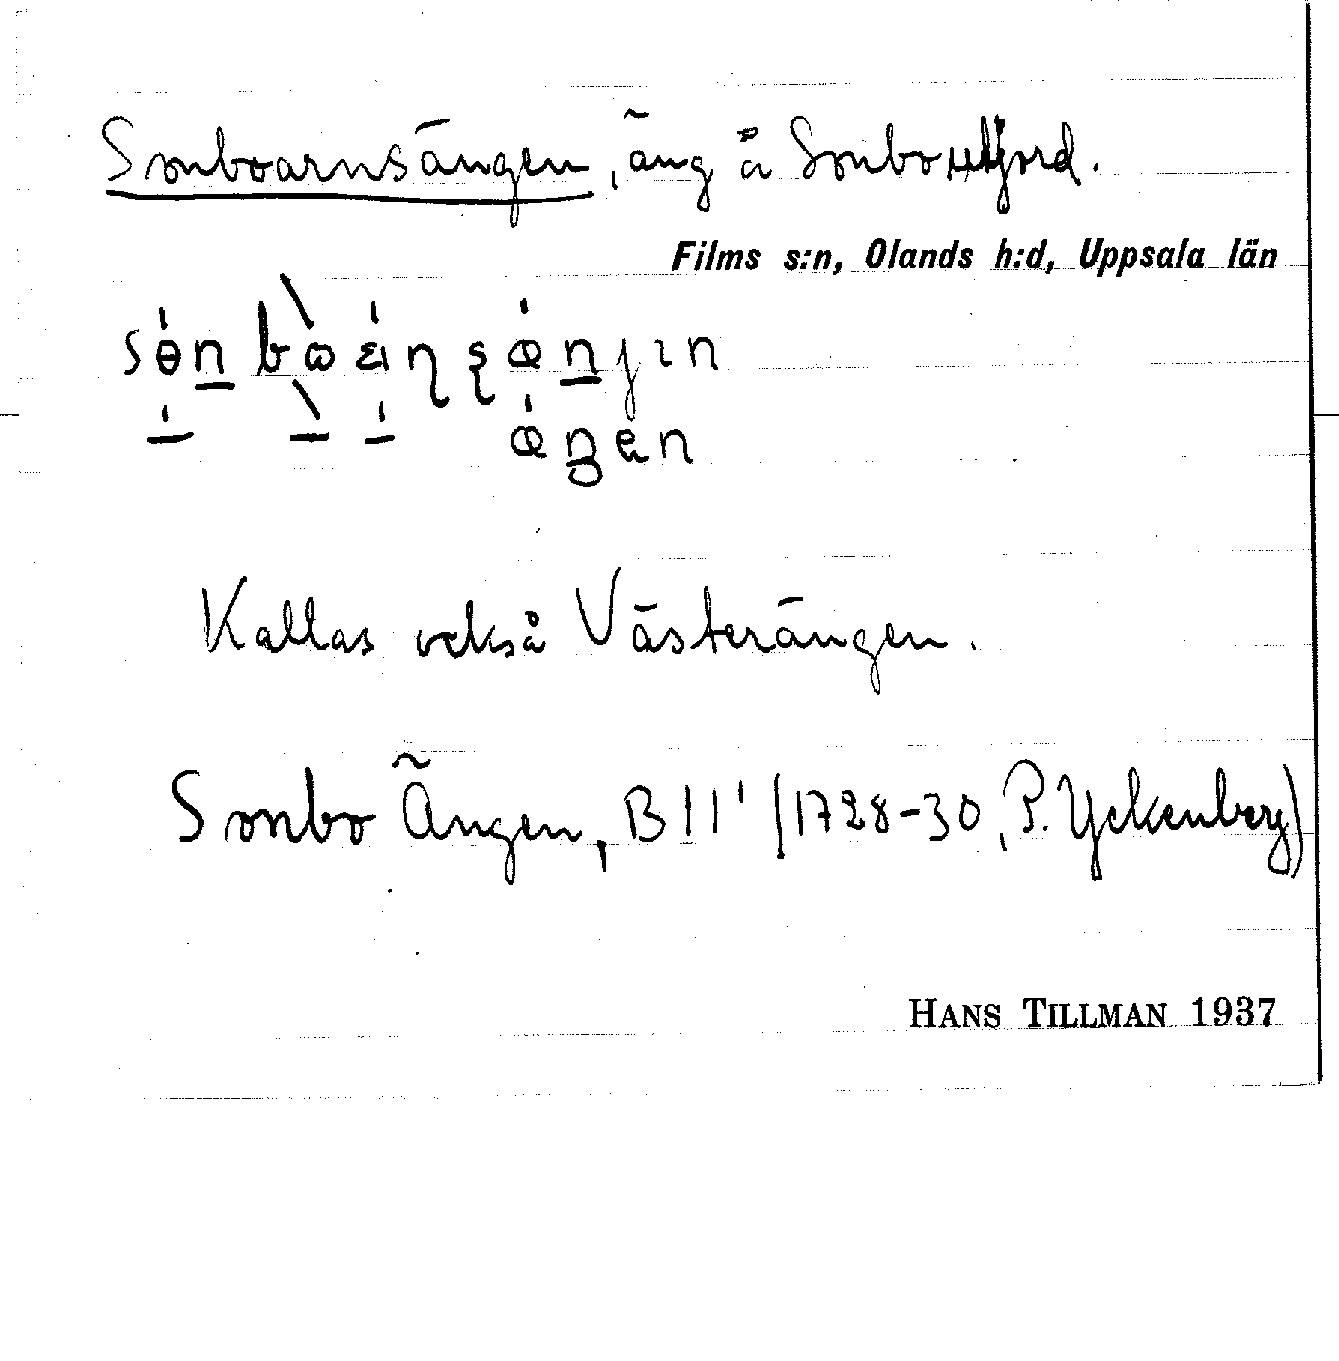 Sonboarnsängen, äng å Sonbo jord.
Films s:n, Olands h:d, Uppsala län
Kallas också Västerängen.
Sonbo Ängen, B 11¹ (1728-30, P. Yckenberg)
HANS TILLMAN 1937